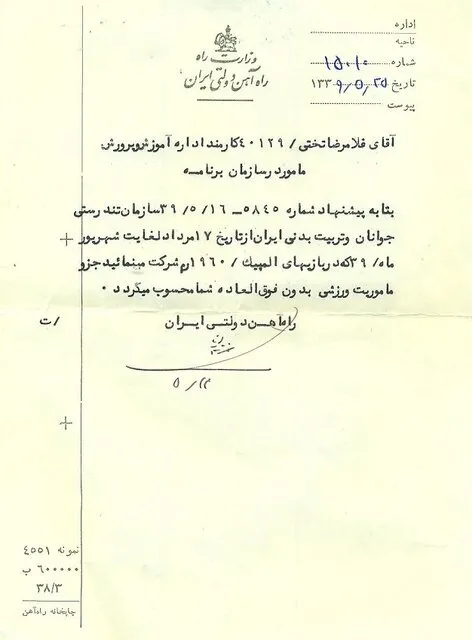 اداره
ناحیه
شماره ۱۵۰۱۰
تاریخ ۱۳۳۹/۵/۲۵
پیوست
وزارت راه
راه آهن دولتی ایران
آقای غلامرضا تختی / ۴۰۱۲۹ کارمند اداره آموزش و پرورش
مامور در سازمان برنامه
بنا به پیشنهاد شماره ۵۸۴۵ - ۳۹/۵/۱۶ سازمان تندرستی
جوانان و تربیت بدنی ایران از تاریخ ۱۷ مرداد لغایت شهریور
ماه / ۳۹ که در بازیهای المپیک / ۱۹۶۰ رم شرکت مینمائید جزو
ماموریت ورزشی بدون فوق العاده شما محسوب میگردد ۰
راه آهن دولتی ایران
/ت
نمونه ۴۵۵۱
۶۰۰۰۰۰ ب
۳۸/۳
چاپخانه راه‌آهن